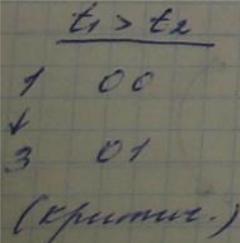 t₁ > t₂
1 00
↓
3 01
(критич.)